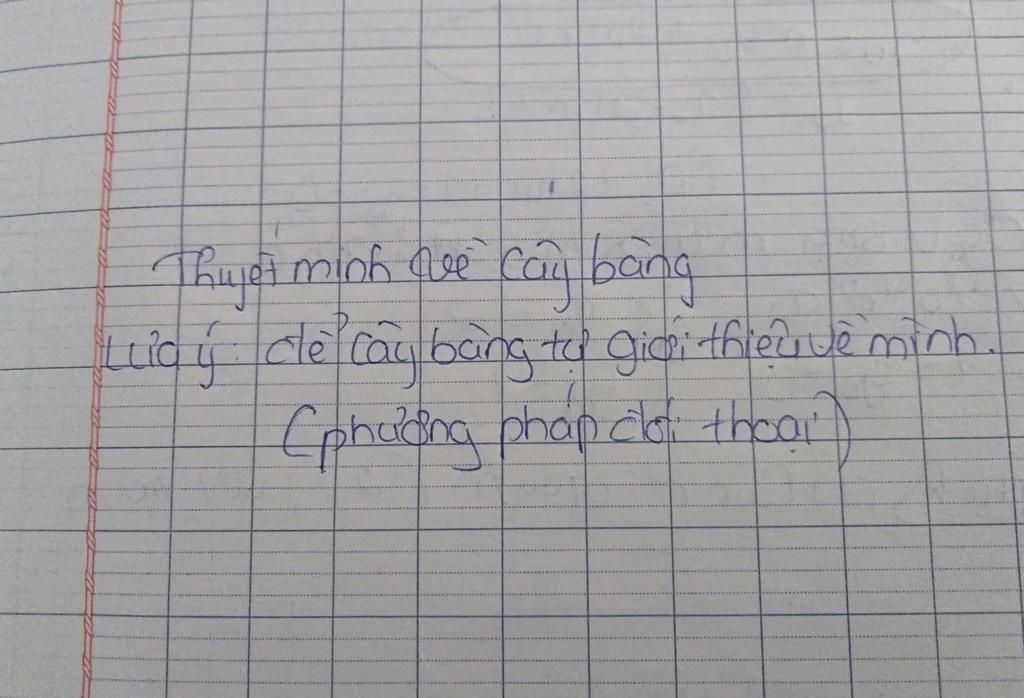 Thuyết minh về cây bàng
Lưu ý: để cây bàng tự giới thiệu về mình.
(phương pháp đối thoại)